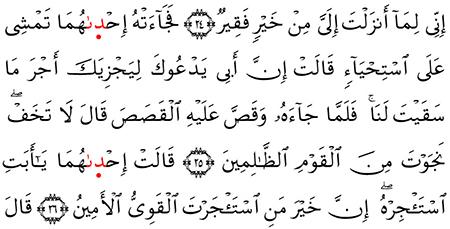 إِنِّى لِمَآ أَنزَلْتَ إِلَىَّ مِنْ خَيْرٍ فَقِيرٌ ﴿٢٤﴾ فَجَآءَتْهُ إِحْدَىٰهُمَا تَمْشِى
عَلَى ٱسْتِحْيَآءٍ قَالَتْ إِنَّ أَبِى يَدْعُوكَ لِيَجْزِيَكَ أَجْرَ مَا
سَقَيْتَ لَنَا ۚ فَلَمَّا جَآءَهُۥ وَقَصَّ عَلَيْهِ ٱلْقَصَصَ قَالَ لَا تَخَفْ ۖ
نَجَوْتَ مِنَ ٱلْقَوْمِ ٱلظَّٰلِمِينَ ﴿٢٥﴾ قَالَتْ إِحْدَىٰهُمَا يَٰٓأَبَتِ
ٱسْتَـْٔجِرْهُ ۖ إِنَّ خَيْرَ مَنِ ٱسْتَـْٔجَرْتَ ٱلْقَوِىُّ ٱلْأَمِينُ ﴿٢٦﴾ قَالَ